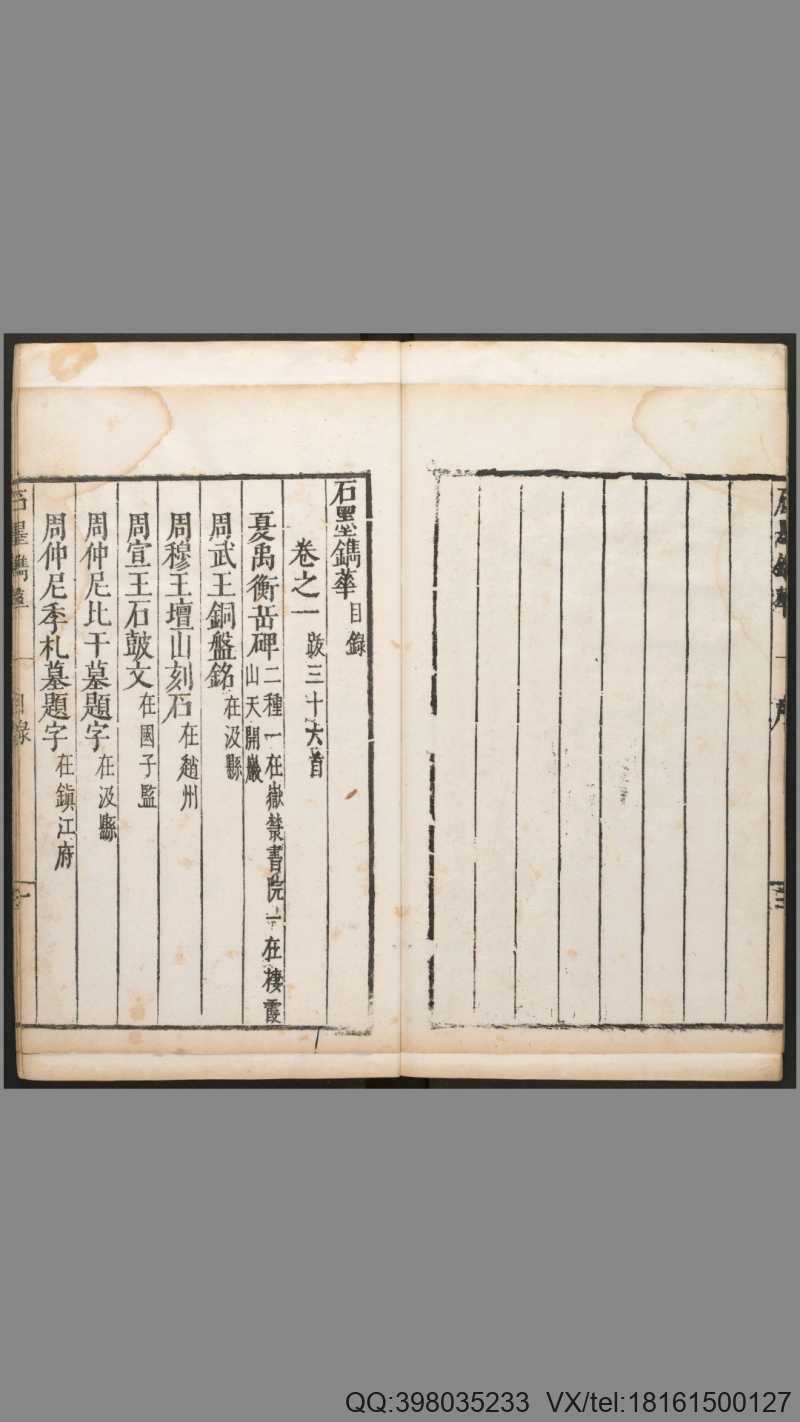 石墨鐫華 目錄
卷之一 跋三十六首
夏禹衡岳碑 二種一在嶽麓書院一在棲霞
山天開巖
周武王銅盤銘 在汲縣
周穆王壇山刻石 在趙州
周宣王石鼓文 在國子監
周仲尼比干墓題字 在汲縣
周仲尼季札墓題字 在鎮江府
石墨鐫華 目錄 一
QQ:398035233 VX/tel:18161500127